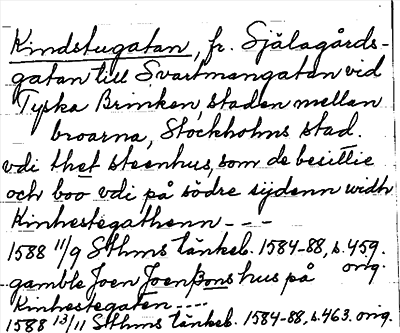 Kindstugatan, fr. Själagårds-
gatan till Svartmangatan vid
Tyska Brinken, staden mellan
broarna, Stockholms stad.
vdi thet steenhus, som de besittie
och boo vdi på södre sijdenn widh
Kinhestegathenn ---
1588 11/9 Sthms tänkeb. 1584-88, s. 459.
orig.
gamble Joen Joenßons hus på
Kinhestegaten ----
1588 13/11 Sthms tänkeb. 1584-88, s. 463. orig.